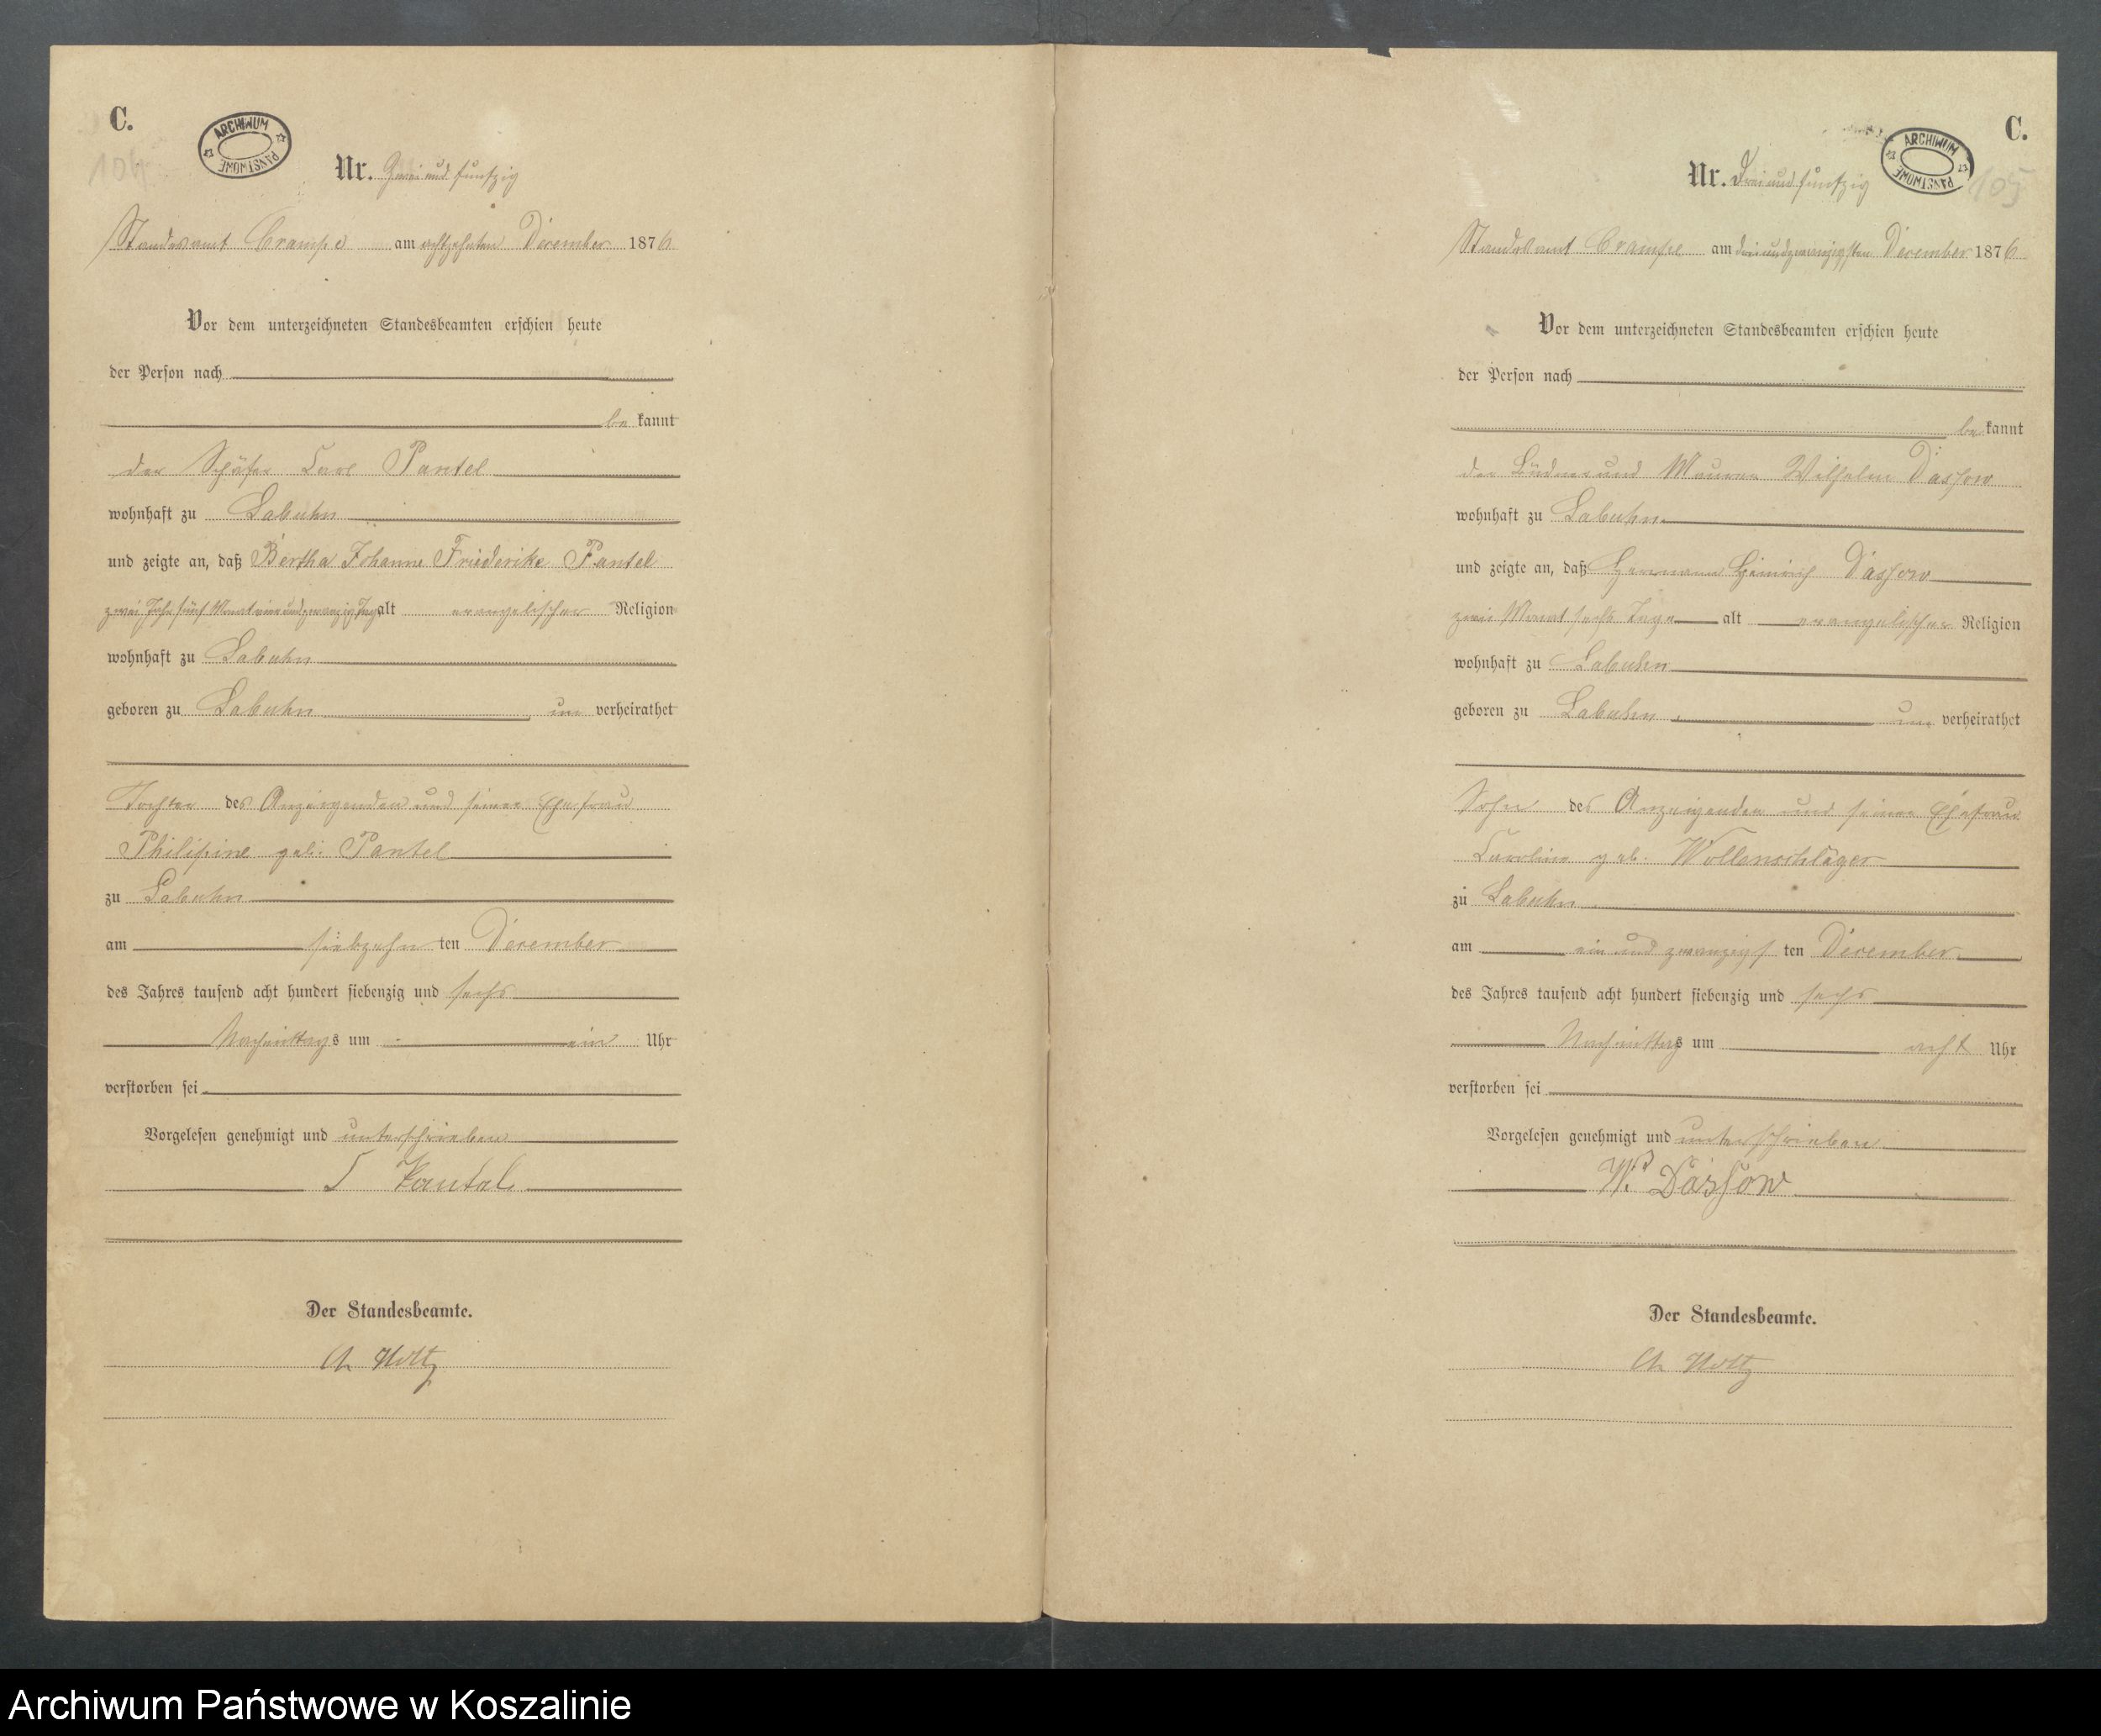 C.
104
ARCHIWUM PAŃSTWOWE
Nr. Zwei und funfzig
Standesamt Crampe am achtzehnten December 1876
Vor dem unterzeichneten Standesbeamten erschien heute
der Person nach
be kannt
der Schäfer Carl Pantel
wohnhaft zu Labuhn
und zeigte an, daß Bertha Johanne Friederike Pantel
zwei Jahr fünf Monat ein und zwanzig Tage alt evangelischer Religion
wohnhaft zu Labuhn
geboren zu Labuhn, un verheirathet
Tochter des Anzeigenden und seiner Ehefrau
Philipine geb. Pantel
zu Labuhn
am siebzehn ten December
des Jahres tausend acht hundert siebenzig und sechs
Nachmittags um ein Uhr
verstorben sei
Vorgelesen genehmigt und unterschrieben
C Pantel
Der Standesbeamte.
Holtz
C.
105
ARCHIWUM PAŃSTWOWE
Nr. Drei und funfzig
Standesamt Crampe am drei und zwanzigsten December 1876
Vor dem unterzeichneten Standesbeamten erschien heute
der Person nach
be kannt
der Büdner und Maurer Wilhelm Dassow
wohnhaft zu Labuhn
und zeigte an, daß Hermann Heinrich Dassow
zwei Monat sechs Tage alt evangelischer Religion
wohnhaft zu Labuhn
geboren zu Labuhn, un verheirathet
Sohn des Anzeigenden und seiner Ehefrau
Caroline geb. Wollenschläger
zu Labuhn
am ein und zwanzigs ten December
des Jahres tausend acht hundert siebenzig und sechs
Nachmittags um acht Uhr
verstorben sei
Vorgelesen genehmigt und unterschrieben
W. Dassow
Der Standesbeamte.
Holtz
Archiwum Państwowe w Koszalinie